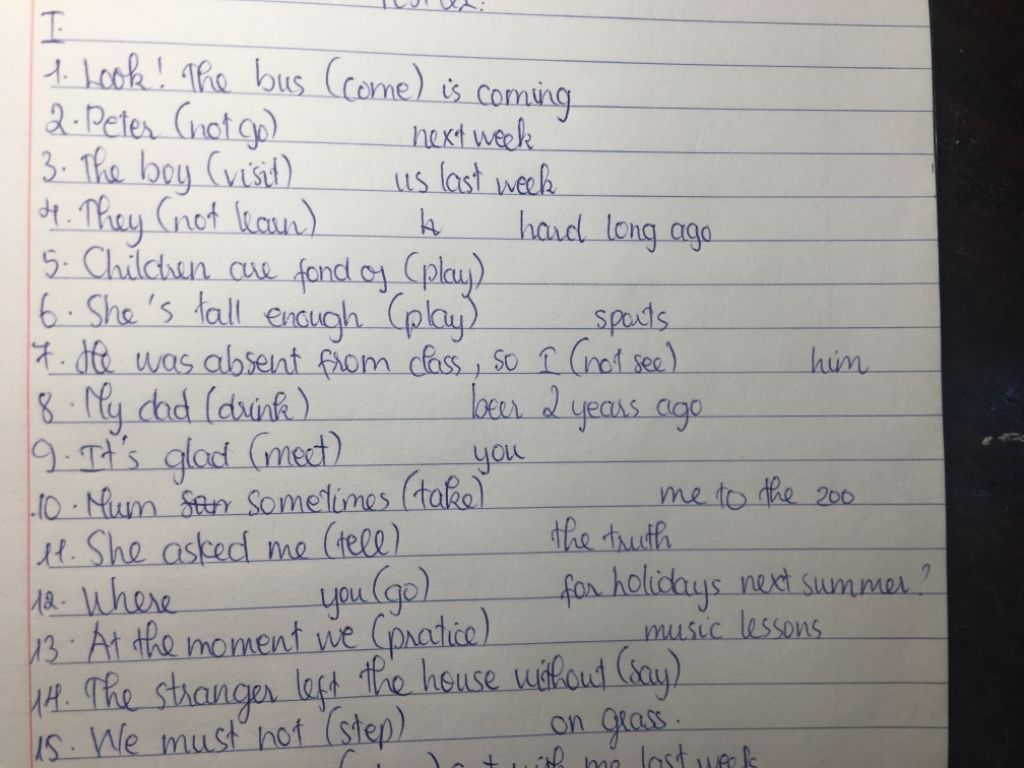 I.
1. Look! The bus (come) is coming
2. Peter (not go) next week
3. The boy (visit) us last week
4. They (not learn) hard long ago
5. Children are fond of (play)
6. She's tall enough (play) sports
7. He was absent from class, so I (not see) him
8. My dad (drink) beer 2 years ago
9. It's glad (meet) you
10. Mum sometimes (take) me to the zoo
11. She asked me (tell) the truth
12. Where you (go) for holidays next summer?
13. At the moment we (pratice) music lessons
14. The stranger left the house without (say)
15. We must not (step) on grass.
with me last week